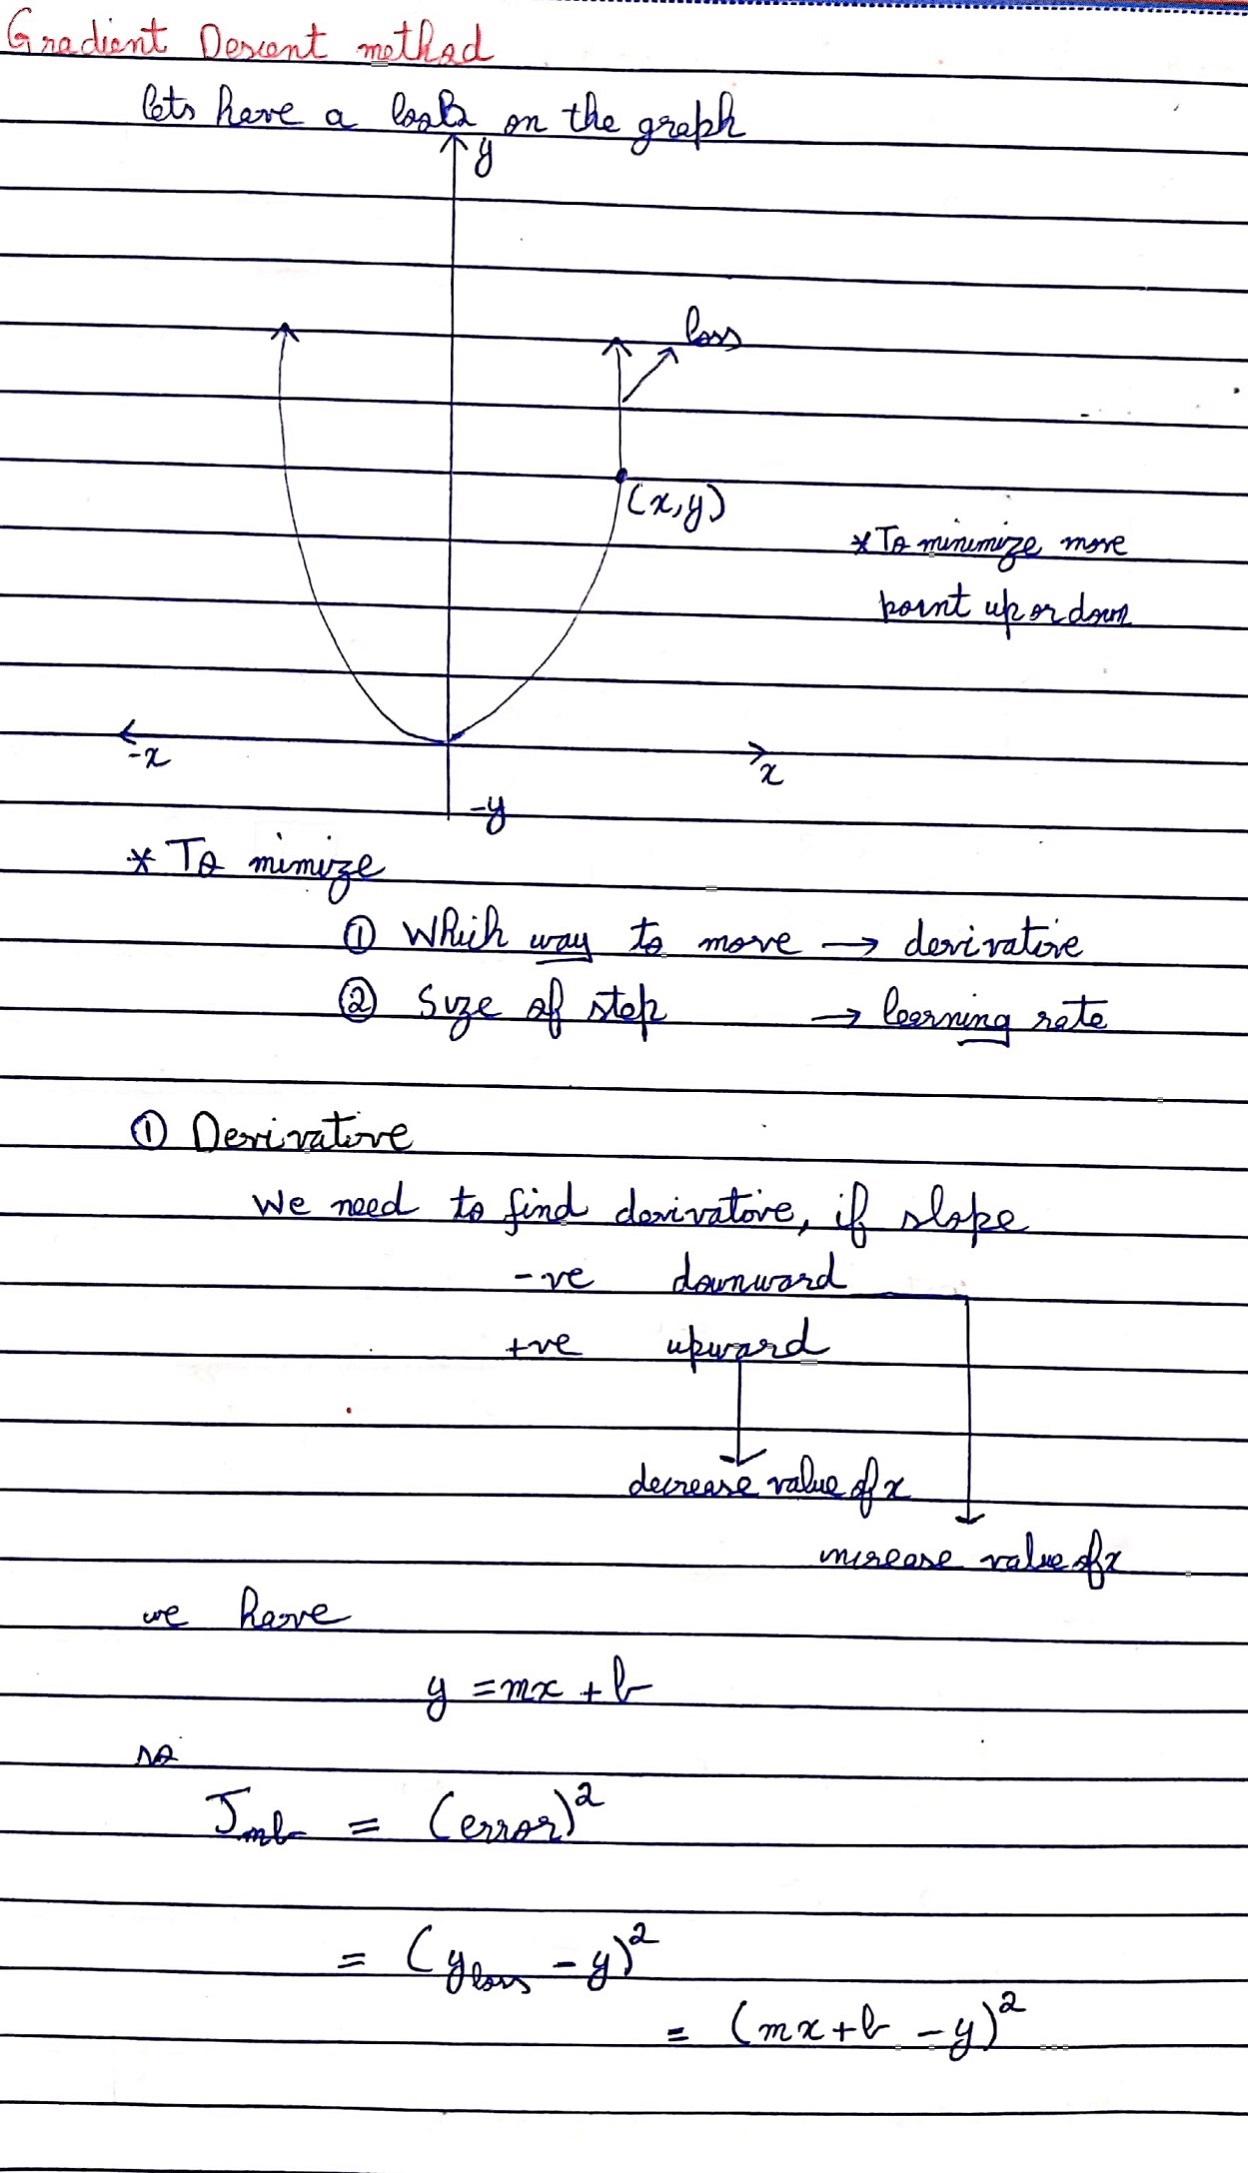 Gradient Descent method
lets have a look on the graph
y
loss
(x,y)
* To minimize move
point up or down
-x
x
-y
* To mimize
① Which way to move → derivative
② Size of step → learning rate
① Derivative
We need to find derivative, if slope
-ve downward
+ve upward
decrease value of x
increase value of x
we have
y = mx + b
so
Jmb = (error)²
= (yloss - y)²
= (mx + b - y)²